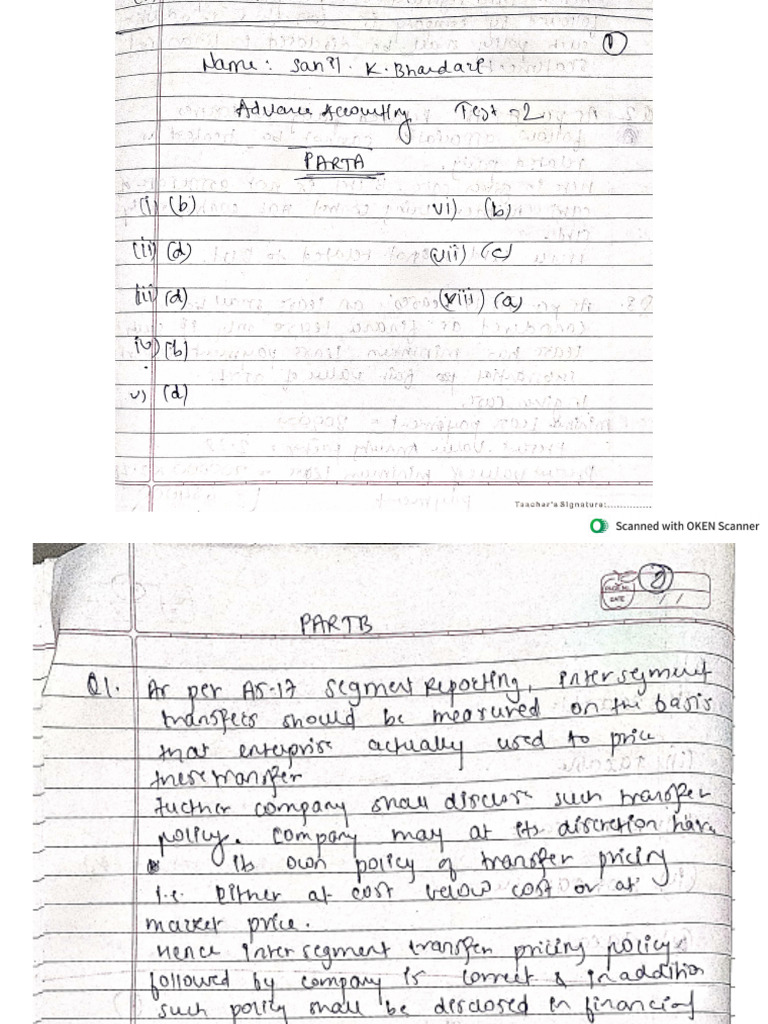 1
Name: Sanil. K. Bhandare
Advance Accounting Test - 2
PART A
(i) (b) vi) (b)
(ii) (d) (vii) (c)
(iii) (d) (viii) (a)
iv) (b)
v) (d)
Teacher's Signature:..............
Scanned with OKEN Scanner
2
PAGE NO.
DATE / /
PART B
Q1. As per AS-17 segment Reporting, inter segment
transfers should be measured on the basis
that enterprise actually used to price
these transfer
Further company shall disclose such transfer
policy. Company may at its discretion have
its own policy of transfer pricing
i.e. Either at cost below cost or at
market price.
Hence inter segment transfer pricing policy
followed by company is correct & in addition
such policy shall be disclosed in financial